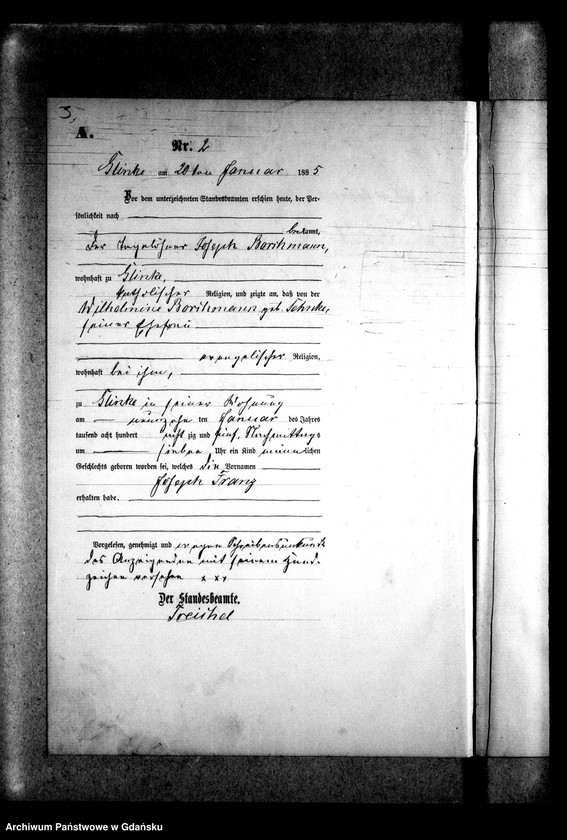 3,
A.
Nr. 2
Glinke am 20ten Januar 1885
Vor dem unterzeichneten Standesbeamten erschien heute, der Per-
sönlichkeit nach
bekannt,
der Tagelöhner Joseph Borchmann,
wohnhaft zu Glinke,
katholischer Religion, und zeigte an, daß von der
Wilhelmine Borchmann geb.
seiner Ehefrau
evangelischer Religion,
wohnhaft bei ihm,
zu Glinke in seiner Wohnung
am neunzehn ten Januar des Jahres
tausend acht hundert acht zig und fünf, Nachmittags
um sieben Uhr ein Kind männlichen
Geschlechts geboren worden sei, welches die Vornamen
Joseph Franz
erhalten habe.
Vorgelesen, genehmigt und wegen Schreibensunkunde
des Anzeigenden mit seinem Hand-
zeichen versehen x x x
Der Standesbeamte.
Treichel
Archiwum Państwowe w Gdańsku